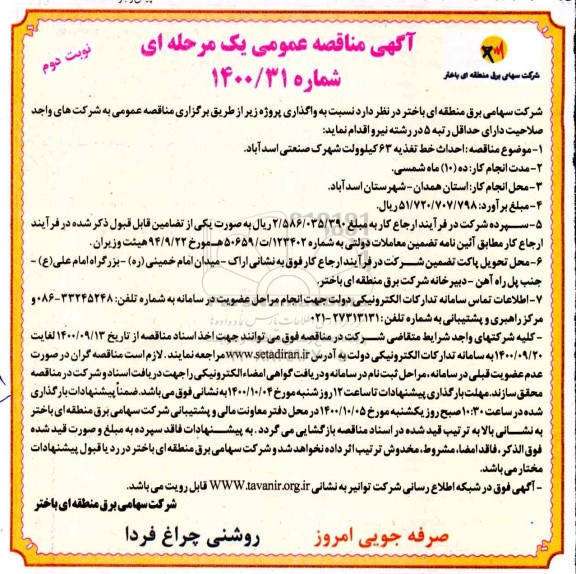 آگهی مناقصه عمومی یک مرحله ای
شماره ۱۴۰۰/۳۱
نوبت دوم
شرکت سهامی برق منطقه ای باختر
شرکت سهامی برق منطقه ای باختر در نظر دارد نسبت به واگذاری پروژه زیر از طریق برگزاری مناقصه عمومی به شرکت های واجد
صلاحیت دارای حداقل رتبه ۵ در رشته نیرو اقدام نماید:
۱- موضوع مناقصه: احداث خط تغذیه ۶۳ کیلوولت شهرک صنعتی اسدآباد.
۲- مدت انجام کار: ده (۱۰) ماه شمسی.
۳- محل انجام کار: استان همدان - شهرستان اسدآباد.
۴- مبلغ برآورد: ۵۱/۷۲۰/۷۰۷/۷۹۸ ریال.
۵- سپرده شرکت در فرآیند ارجاع کار به مبلغ ۲/۵۸۶/۰۳۵/۳۹۰ ریال به صورت یکی از تضامین قابل قبول ذکر شده در فرآیند
ارجاع کار مطابق آئین نامه تضمین معاملات دولتی به شماره ۱۲۳۴۰۲/ت۵۰۶۵۹هـ مورخ ۹۴/۹/۲۲ هیئت وزیران.
۶- محل تحویل پاکت تضمین شرکت در فرآیند ارجاع کار فوق به نشانی اراک - میدان امام خمینی (ره) - بزرگراه امام علی (ع) -
جنب پل راه آهن - دبیرخانه شرکت برق منطقه ای باختر.
۷- اطلاعات تماس سامانه تدارکات الکترونیکی دولت جهت انجام مراحل عضویت در سامانه به شماره تلفن: ۳۳۲۴۵۲۴۸-۰۸۶ و
مرکز راهبری و پشتیبانی به شماره تلفن: ۲۷۳۱۳۱۳۱-۰۲۱
- کلیه شرکتهای واجد شرایط متقاضی شرکت در مناقصه فوق می توانند جهت اخذ اسناد مناقصه از تاریخ ۱۴۰۰/۰۹/۱۳ لغایت
۱۴۰۰/۰۹/۲۰ به سامانه تدارکات الکترونیکی دولت به آدرس www.setadiran.ir مراجعه نمایند. لازم است مناقصه گران در صورت
عدم عضویت قبلی در سامانه، مراحل ثبت نام در سامانه و دریافت گواهی امضاء الکترونیکی را جهت دریافت اسناد و شرکت در مناقصه
محقق سازند. مهلت بارگذاری پیشنهادات تا ساعت ۱۲ روز شنبه مورخ ۱۴۰۰/۱۰/۰۴ به نشانی فوق می باشد. ضمناً پیشنهادات بارگذاری
شده در ساعت ۱۰:۳۰ صبح روز یکشنبه مورخ ۱۴۰۰/۱۰/۰۵ در محل دفتر معاونت مالی و پشتیبانی شرکت سهامی برق منطقه ای باختر
به نشانی بالا به ترتیب قید شده در اسناد مناقصه بازگشایی می گردد. به پیشنهادات فاقد سپرده به مبلغ و صورت قید شده
فوق الذکر، فاقد امضا، مشروط، مخدوش ترتیب اثر داده نخواهد شد و شرکت سهامی برق منطقه ای باختر در رد یا قبول پیشنهادات
مختار می باشد.
- آگهی فوق در شبکه اطلاع رسانی شرکت توانیر به نشانی WWW.tavanir.org.ir قابل رویت می باشد.
شرکت سهامی برق منطقه ای باختر
صرفه جویی امروز روشنی چراغ فردا